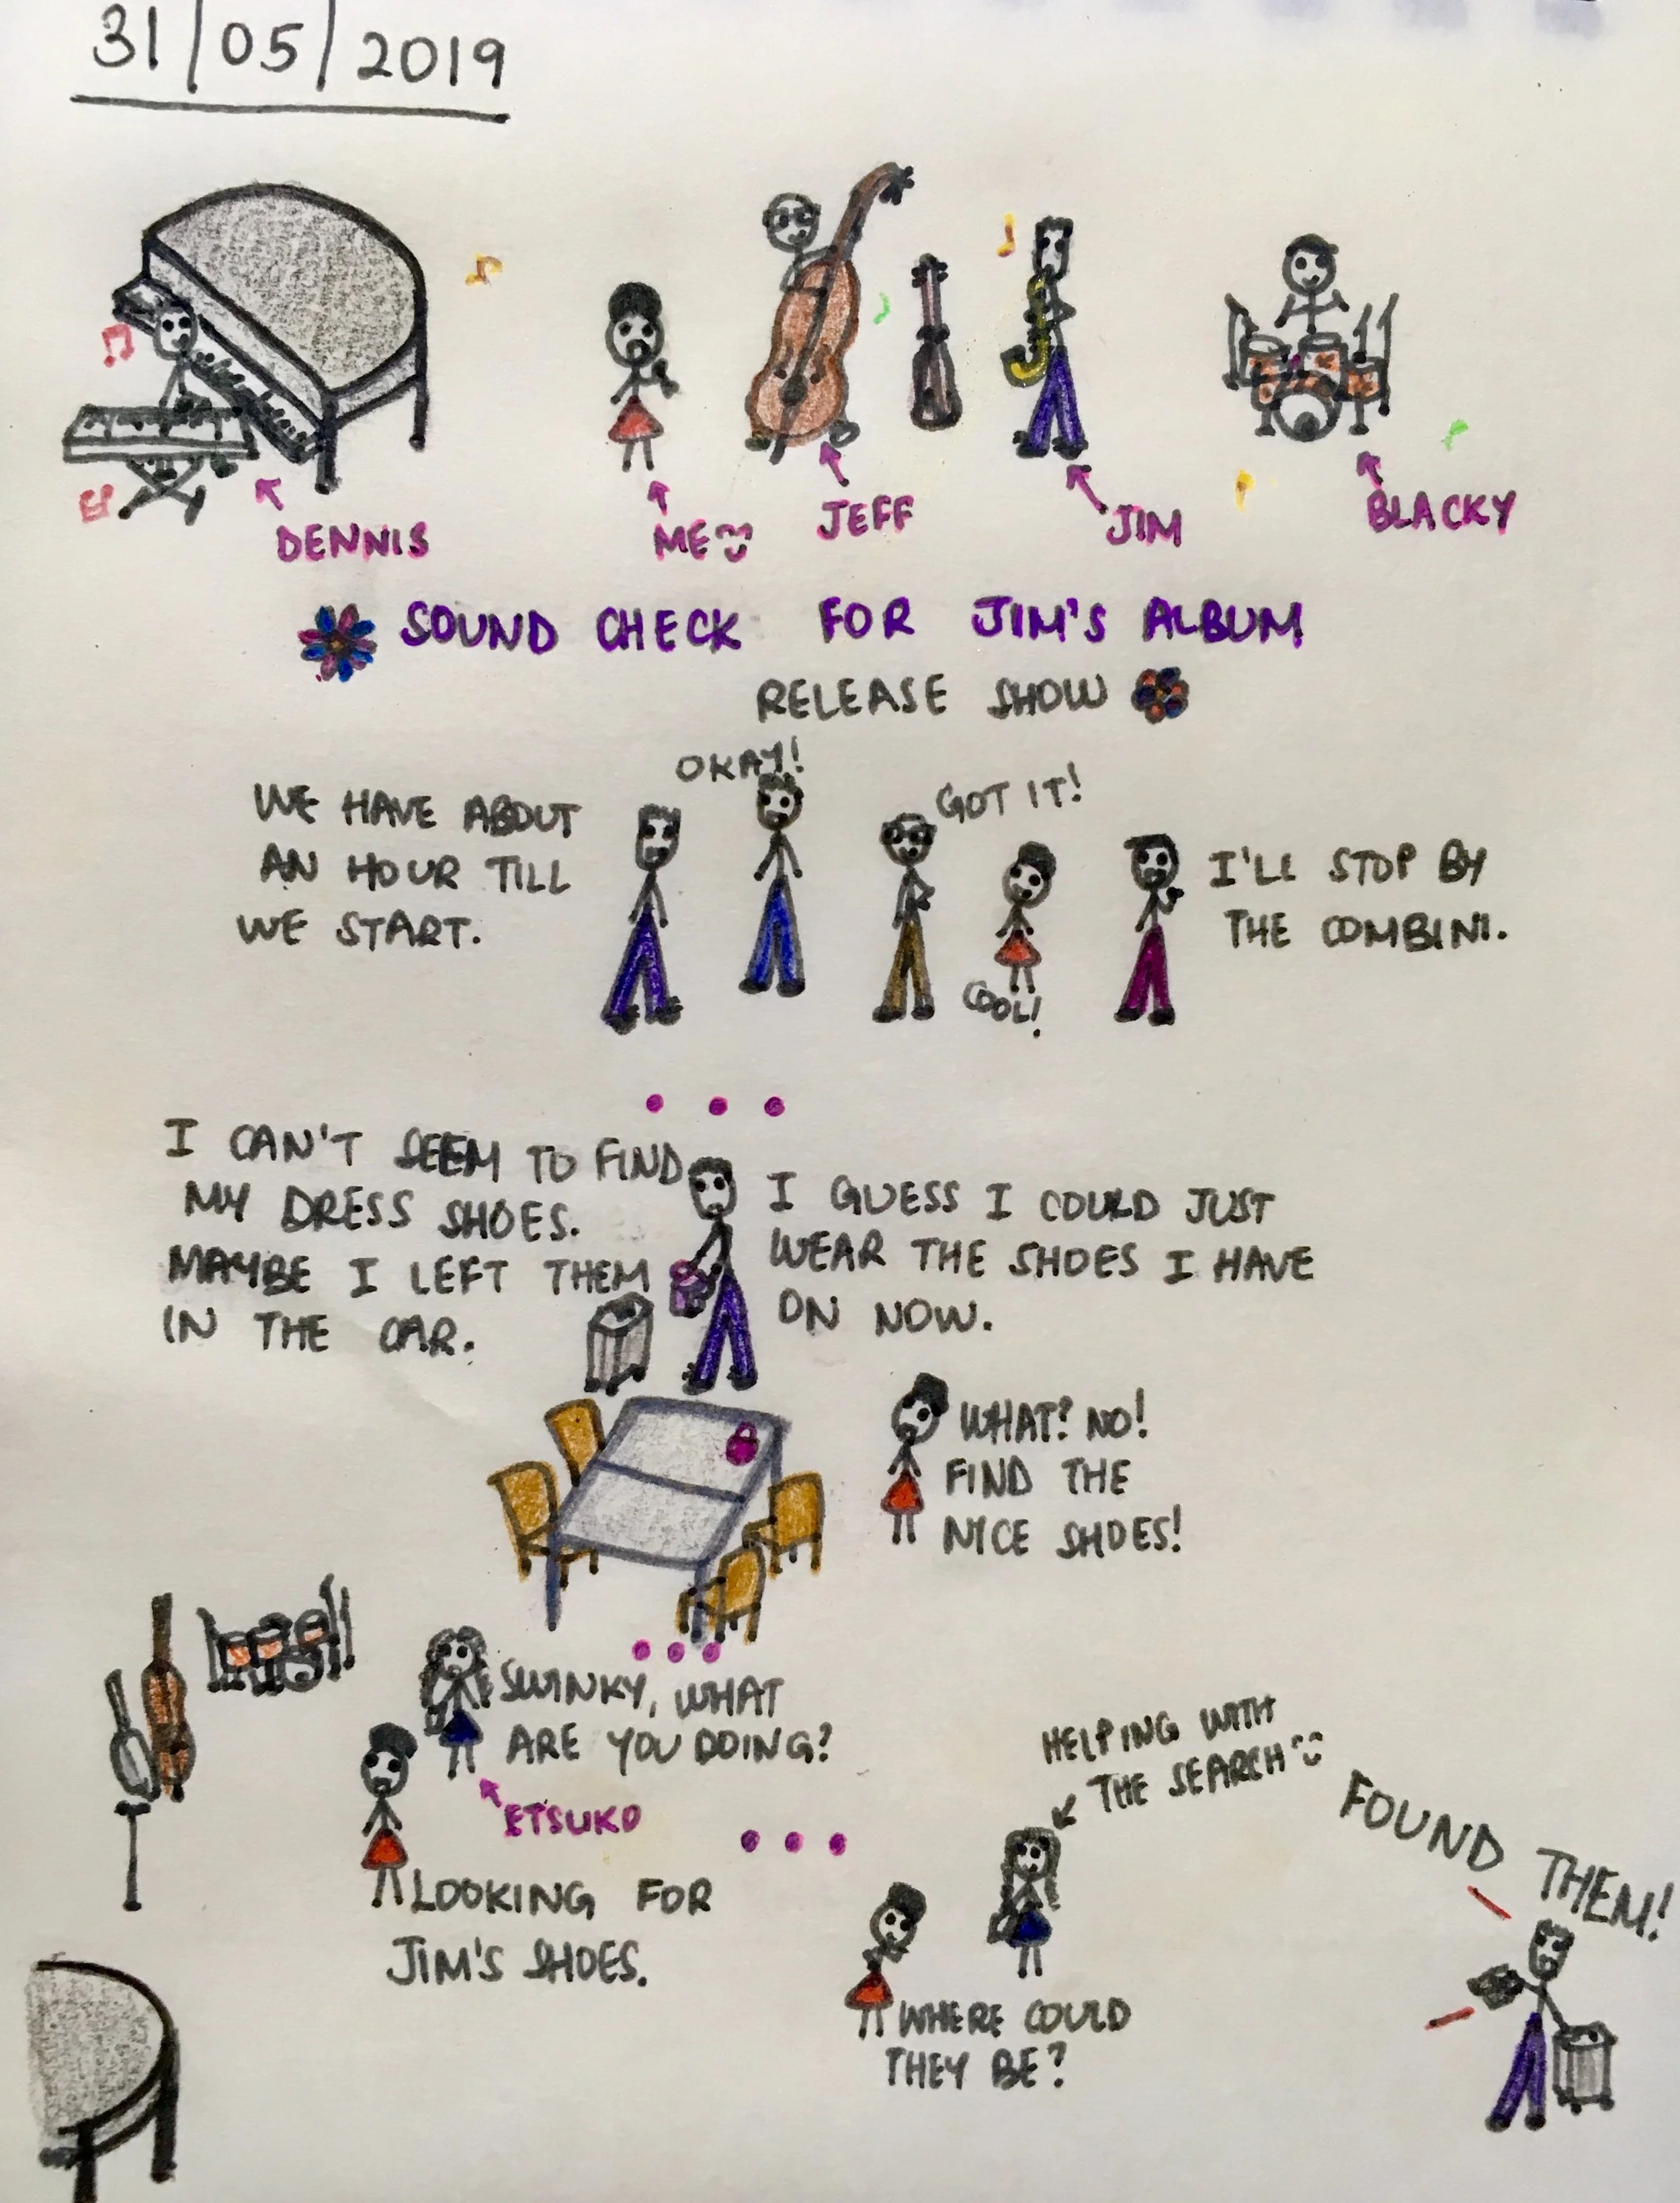 31/05/2019
DENNIS
ME
JEFF
JIM
BLACKY
SOUND CHECK FOR JIM'S ALBUM
RELEASE SHOW
WE HAVE ABOUT
AN HOUR TILL
WE START.
OKAY!
GOT IT!
COOL!
I'LL STOP BY
THE COMBINI.
I CAN'T SEEM TO FIND
MY DRESS SHOES.
MAYBE I LEFT THEM
IN THE CAR.
I GUESS I COULD JUST
WEAR THE SHOES I HAVE
ON NOW.
WHAT? NO!
FIND THE
NICE SHOES!
SWINKY, WHAT
ARE YOU DOING?
ETSUKO
LOOKING FOR
JIM'S SHOES.
HELPING WITH
THE SEARCH
WHERE COULD
THEY BE?
FOUND THEM!